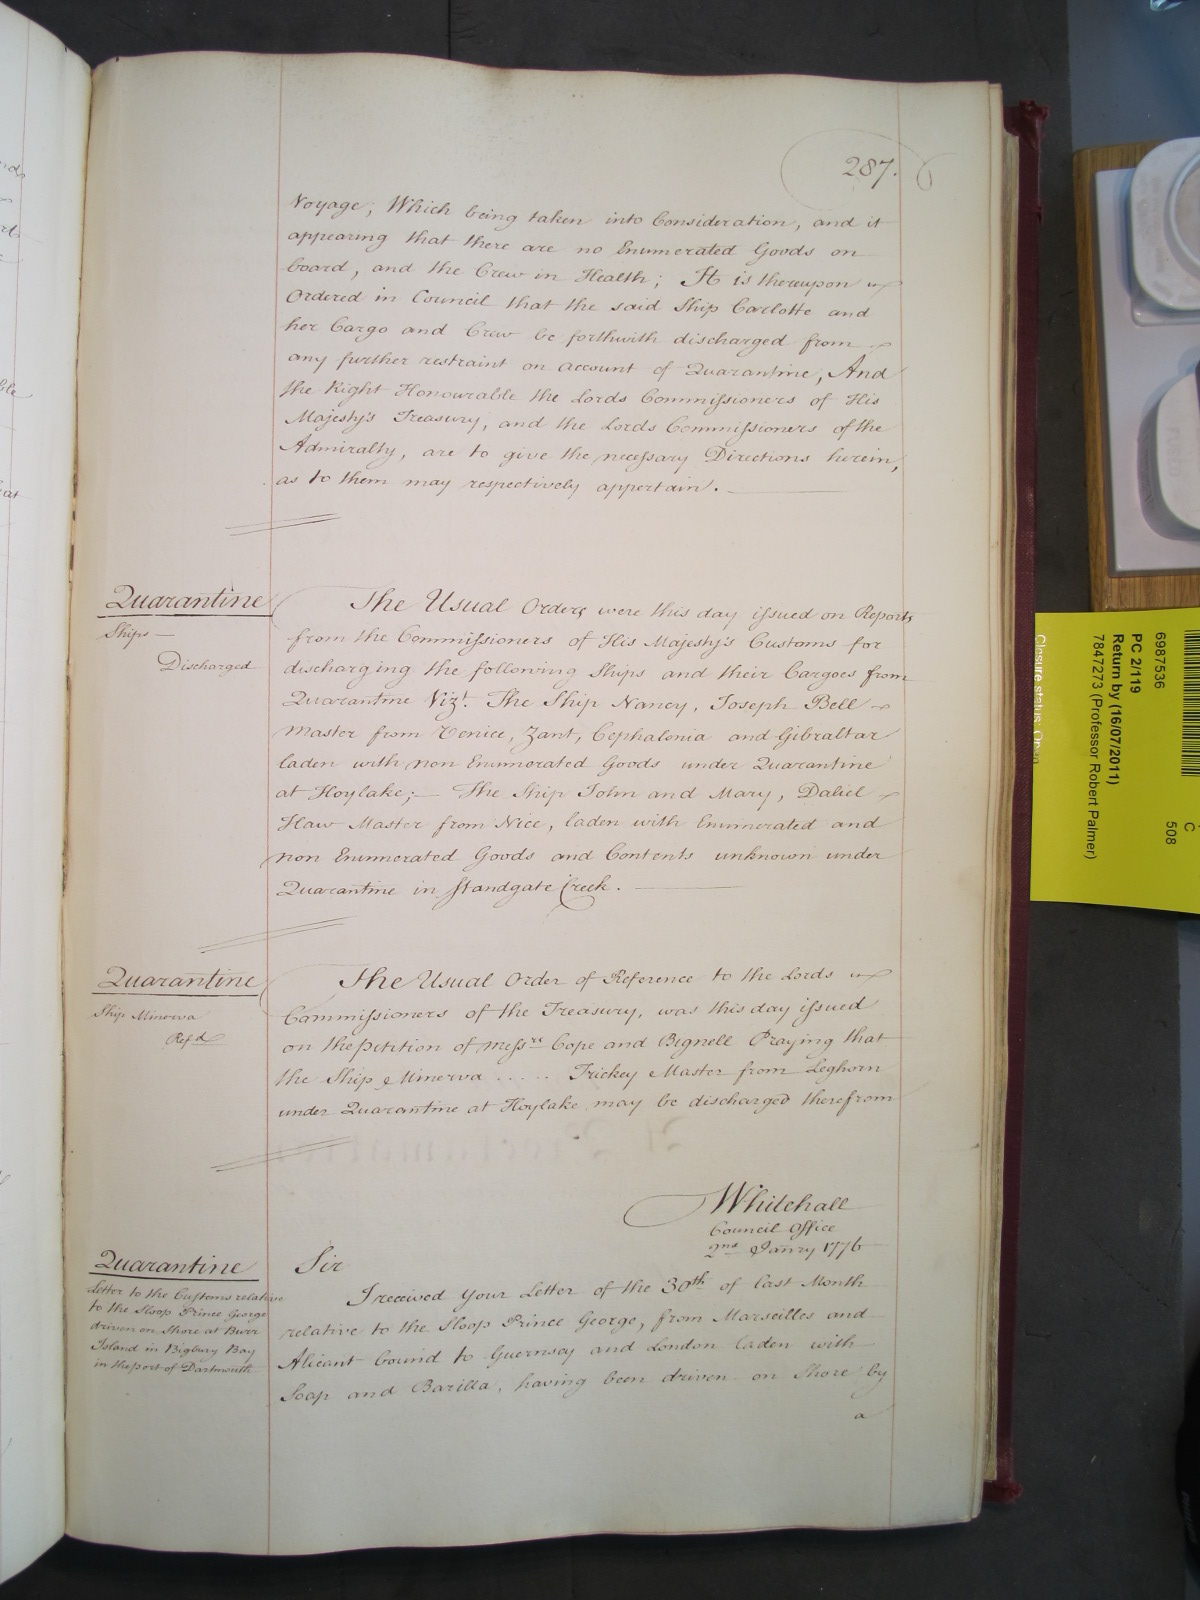 287.
Voyage; Which being taken into Consideration, and it
appearing that there are no Enumerated Goods on
board, and the Crew in Health; It is thereupon
Ordered in Council that the said Ship Carlotte and
her Cargo and Crew be forthwith discharged from
any further restraint on account of Quarantine, And
the Right Honourable the Lords Commissioners of His
Majesty's Treasury, and the Lords Commissioners of the
Admiralty, are to give the necessary Directions herein,
as to them may respectively appertain.
Quarantine
Ships
Discharged
The Usual Orders were this day issued on Reports
from the Commissioners of His Majesty's Customs for
discharging the following Ships and their Cargoes from
Quarantine Vizt. The Ship Nancy, Joseph Bell
Master from Venice, Zant, Cephalonia and Gibraltar
laden with non Enumerated Goods under Quarantine
at Hoylake; The Ship John and Mary, Daliel
Haw Master from Nice, laden with Enumerated and
non Enumerated Goods and Contents unknown under
Quarantine in Standgate Creek.
Quarantine
Ship Minerva
Refd
The Usual Order of Reference to the Lords
Commissioners of the Treasury, was this day issued
on the petition of Messrs Cope and Bignell Praying that
the Ship Minerva ..... Trickey Master from Leghorn
under Quarantine at Hoylake may be discharged therefrom
Whitehall
Council Office
2nd Janry 1776
Quarantine
Letter to the Customs relative
to the Sloop Prince George
driven on Shore at Burr
Island in Bigbury Bay
in the port of Dartmouth
Sir
I received your Letter of the 30th of last Month
relative to the Sloop Prince George, from Marseilles and
Alicant bound to Guernsey and London laden with
Soap and Barilla, having been driven on Shore by
a
6987536
PC 2/119
Return by (16/07/2011)
7847273 (Professor Robert Palmer)
Closure status: Open
C
508